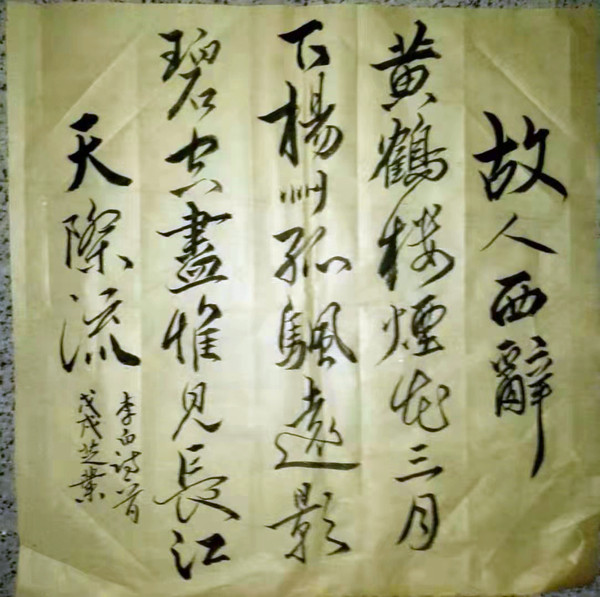 故人西辭
黃鶴楼煙花三月
下楊州孤颿遠影
碧空盡惟見長江
天際流
李白詩首
戊戌芝業